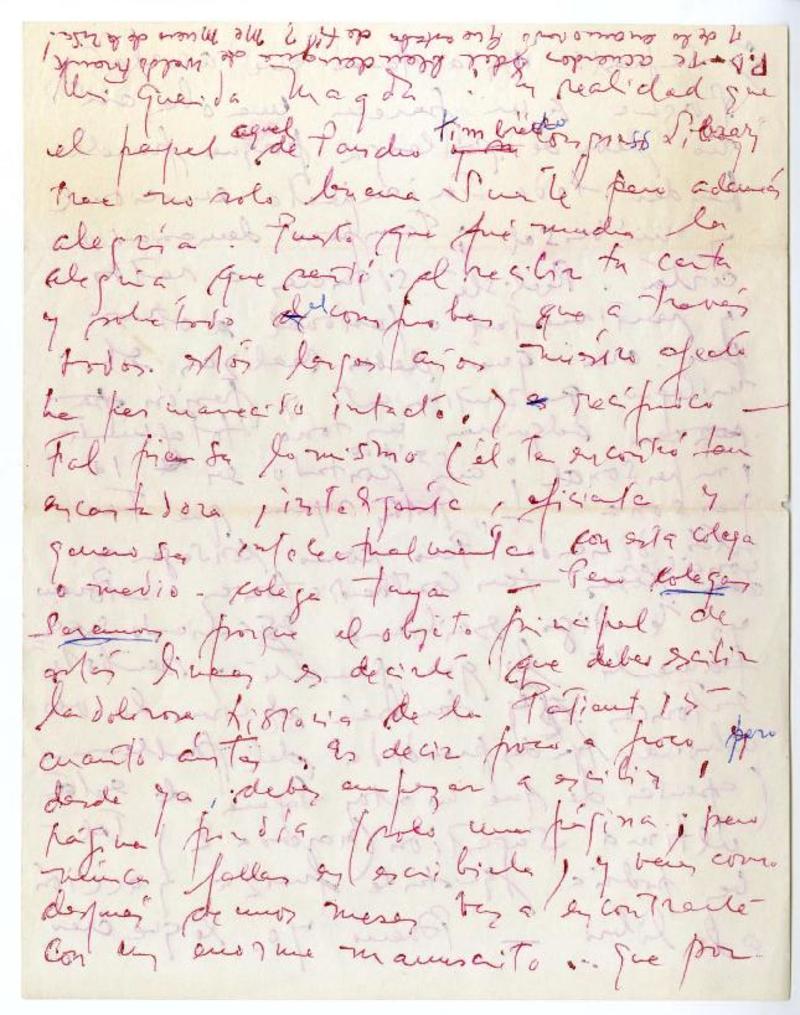 P.D. Te acuerdas del de Waldo Frank
y de lo enamorado que estaba de ti? Me muero de la risa!
Mi querida Magda: En realidad que
el papel aquel de Pancho timbrado Congress Library
trae no solo buena suerte pero además
alegría. Puesto que fué mucha la
alegría que sentí al recibir tu carta
y sobretodo el comprobar que a través
todos estos largos años nuestro afecto
ha permanecido intacto, y recíproco —
Fal piensa lo mismo (él te encontró tan
encantadora, inteligente, eficiente y
generosa intelectualmente con esta colega
o medio-colega tuya — Pero colegas
seremos porque el objeto principal de
estas lineas es decirte que debes escribir
la dolorosa historia de la
cuanto antes. Es decir poco a poco pero
desde ya, debes empezar a escribir 1
página por día (solo una página; pero
nunca falles en escribirla) y veras como
después de unos meses vas a encontrarte
con un enorme manuscrito... que por